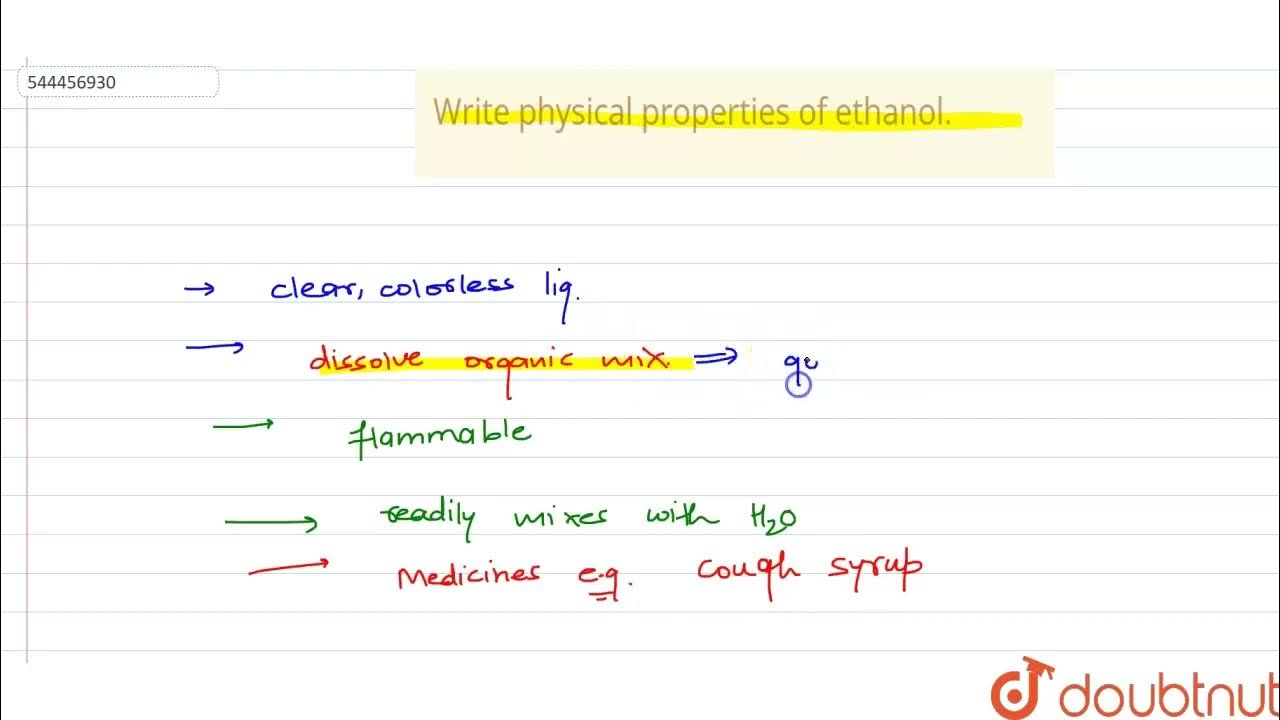 544456930
Write physical properties of ethanol.
→ clear, colorless liq.
→ dissolve organic mix. ⇒
→ flammable
→ readily mixes with H₂O
→ Medicines e.g. cough syrup
doubtnut